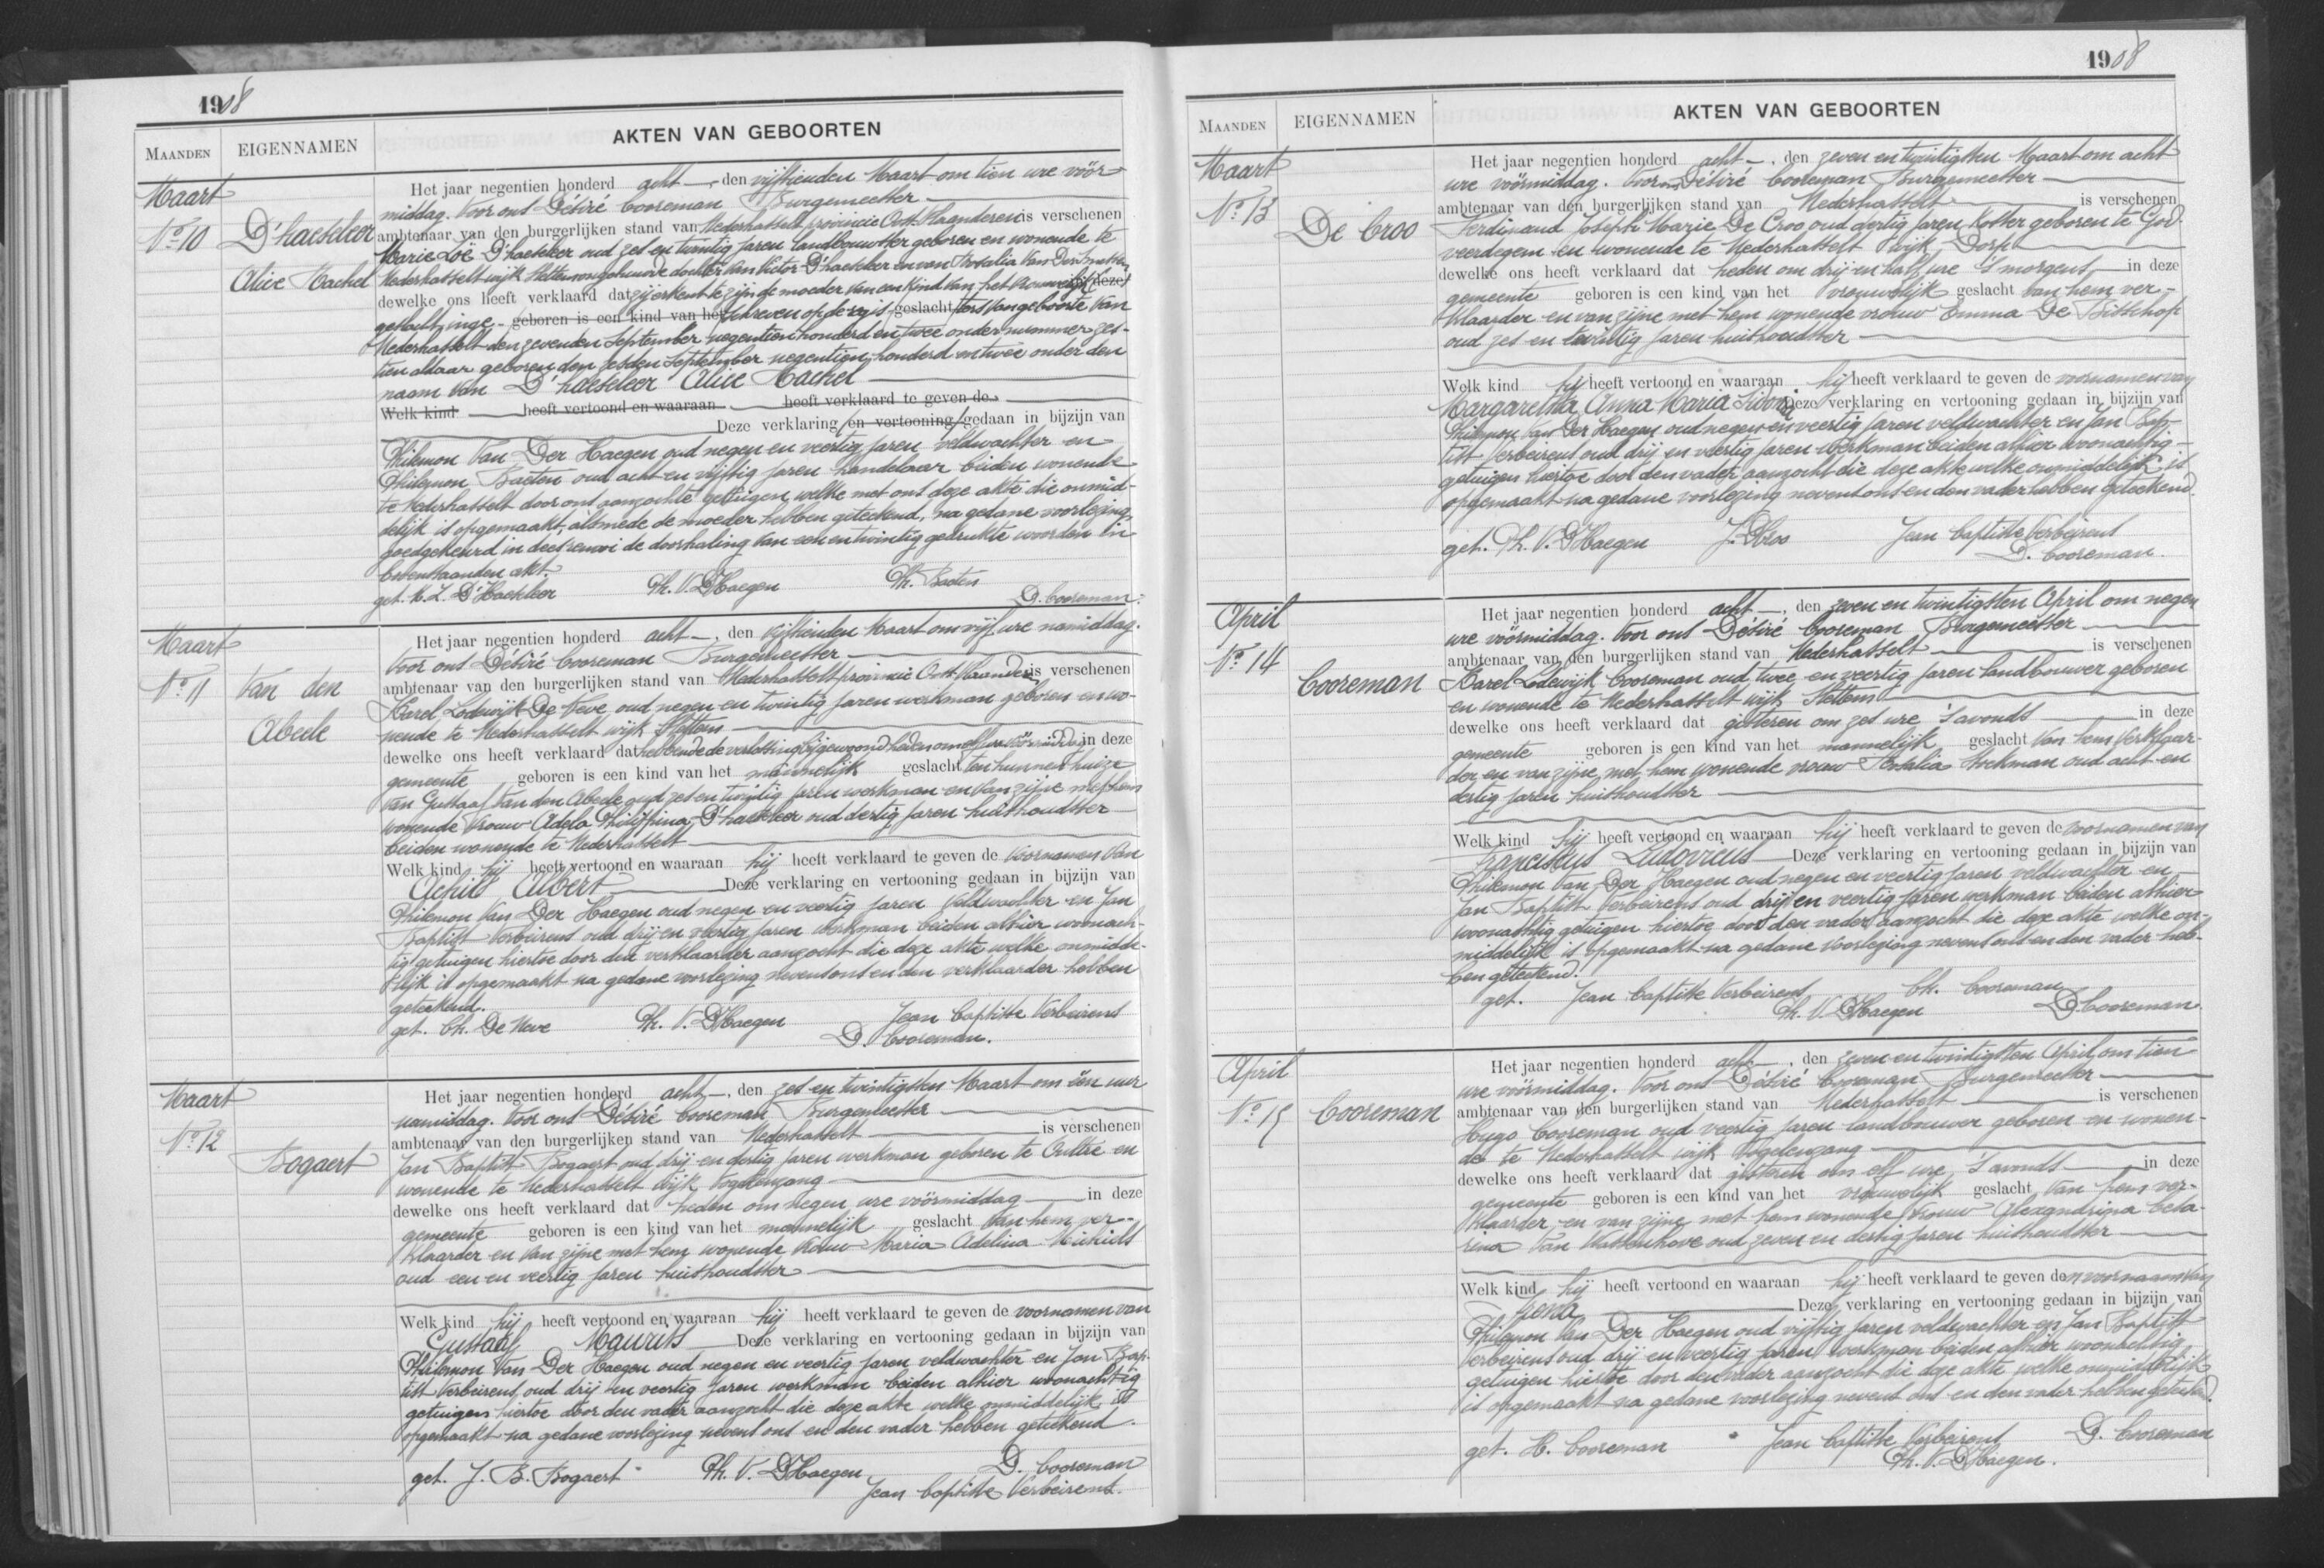 1908
MAANDEN EIGENNAMEN AKTEN VAN GEBOORTEN
Maart
No 10
D'haeseleer
Alice Rachel
Het jaar negentien honderd acht —, den vijftienden Maart om tien ure vöor
middag. Voor ons Désiré Cooreman Burgemeester
ambtenaar van den burgerlijken stand van Nederhasselt provincie Oost Vlaanderen is verschenen
Marie D'haeseleer oud zes en twintig jaren landbouwster geboren en wonende te
Nederhasselt wijk Stettens ongehuwde dochter van Victor D'haeseleer en van Rosalia Van
dewelke ons heeft verklaard dat zij erkent te zijn de moeder van een kind van het vrouwelijk in deze
geslacht, inge- geboren is een kind van het schreven op de regis- geslacht ters van geboorte van
Nederhasselt den zevenden September negentien honderd en twee onder nummer zes-
tien aldaar geboren den zesden September negentien honderd en twee onder den
naam van D'haeseleer Alice Rachel
Welk kind heeft vertoond en waaraan heeft verklaard te geven de
Deze verklaring (en vertooning) gedaan in bijzijn van
Philemon Van Der Haegen oud negen en veertig jaren veldwachter en
Philemon Baeten oud acht en vijftig jaren handelaar beiden wonende
te Nederhasselt door ons aanzochte getuigen, welke met ons deze akte die onmid-
delijk is opgemaakt, alsmede de moeder hebben geteekend, na gedane voorlezing,
goedgekeurd in dees renvooi de doorhaling van een en twintig gedrukte woorden in
bovenstaanden akt.
get. M. L. D'Haeseleer Ph. V. D Haegen Ph. Baeten D. Cooreman.
Maart
No 11
Van den
Abeele
Het jaar negentien honderd acht —, den vijftienden Maart om vijf ure namiddag.
Voor ons Désiré Cooreman Burgemeester
ambtenaar van den burgerlijken stand van Nederhasselt provincie Oost Vlaanderen is verschenen
Karel Lodewijk De Neve oud negen en twintig jaren werkman geboren en wo-
nende te Nederhasselt wijk Stettens
dewelke ons heeft verklaard dat hebbende de verlossing bijgewoond heden om elf ure vöormiddag in deze
gemeente geboren is een kind van het mannelijk geslacht ten hunnen huize
van Gustaaf Van den Abeele oud zes en twintig jaren werkman en van zijne met hem
wonende vrouw Adela Philippina D'haeseleer oud dertig jaren huishoudster
beiden wonende te Nederhasselt
Welk kind hij heeft vertoond en waaraan hij heeft verklaard te geven de voornamen van
Achiel Albert Deze verklaring en vertooning gedaan in bijzijn van
Philemon Van Der Haegen oud negen en veertig jaren veldwachter en Jan
Baptist Verbeirens oud drij en veertig jaren werkman beiden alhier woonach-
tig getuigen hiertoe door den verklaarder aanzocht die deze akte welke onmidde-
lijk is opgemaakt na gedane voorlezing nevens ons en den verklaarder hebben
geteekend.
get. Ch. De Neve Ph. V. D Haegen Jean Baptiste Verbeirens
D. Cooreman.
Maart
No 12
Bogaert
Het jaar negentien honderd acht —, den zes en twintigsten Maart om één uur
namiddag. Voor ons Désiré Cooreman Burgemeester
ambtenaar van den burgerlijken stand van Nederhasselt is verschenen
Jan Baptist Bogaert oud drij en dertig jaren werkman geboren te Oultre en
wonende te Nederhasselt wijk Vogelenzang
dewelke ons heeft verklaard dat heden om negen ure vöormiddag in deze
gemeente geboren is een kind van het mannelijk geslacht van hem ver-
klaarder en van zijne met hem wonende vrouw Maria Adelina Michiels
oud een en veertig jaren huishoudster
Welk kind hij heeft vertoond en waaraan hij heeft verklaard te geven de voornamen van
Gustaaf Maurits Deze verklaring en vertooning gedaan in bijzijn van
Philemon Van Der Haegen oud negen en veertig jaren veldwachter en Jan Bap-
tist Verbeirens oud drij en veertig jaren werkman beiden alhier woonachtig
getuigen hiertoe door den vader aanzocht die deze akte welke onmiddelijk is
opgemaakt na gedane voorlezing nevens ons en den vader hebben geteekend.
get. J. B. Bogaert Ph. V. D Haegen D. Cooreman
Jean Baptiste Verbeirens.
1908
MAANDEN EIGENNAMEN AKTEN VAN GEBOORTEN
Maart
No 13
De Croo
Het jaar negentien honderd acht —, den zeven en twintigsten Maart om acht
ure vöormiddag. Voor ons Désiré Cooreman Burgemeester
ambtenaar van den burgerlijken stand van Nederhasselt is verschenen
Ferdinand Joseph Marie De Croo oud dertig jaren koster geboren te God-
veerdegem en wonende te Nederhasselt wijk Dorp
dewelke ons heeft verklaard dat heden om drij en half ure 's morgens in deze
gemeente geboren is een kind van het vrouwelijk geslacht van hem ver-
klaarder en van zijne met hem wonende vrouw Emma De Bisschop
oud zes en twintig jaren huishoudster
Welk kind hij heeft vertoond en waaraan hij heeft verklaard te geven de voornamen van
Margaretha Anna Maria Deze verklaring en vertooning gedaan in bijzijn van
Philemon Van Der Haegen oud negen en veertig jaren veldwachter en Jan Bap-
tist Verbeirens oud drij en veertig jaren werkman beiden alhier woonachtig
getuigen hiertoe door den vader aanzocht die deze akte welke onmiddelijk is
opgemaakt na gedane voorlezing nevens ons en den vader hebben geteekend.
get. Ph. V. D Haegen J. D Croo Jean Baptiste Verbeirens
D. Cooreman.
April
No 14
Cooreman
Het jaar negentien honderd acht —, den zeven en twintigsten April om negen
ure vöormiddag. Voor ons Désiré Cooreman Burgemeester
ambtenaar van den burgerlijken stand van Nederhasselt is verschenen
Karel Lodewijk Cooreman oud twee en veertig jaren landbouwer geboren
en wonende te Nederhasselt wijk Stettens
dewelke ons heeft verklaard dat gisteren om zes ure 's avonds in deze
gemeente geboren is een kind van het mannelijk geslacht van hem verklaar-
der en van zijne met hem wonende vrouw Rosalia oud acht en
dertig jaren huishoudster
Welk kind hij heeft vertoond en waaraan hij heeft verklaard te geven de voornamen van
Franciscus Ludovicus Deze verklaring en vertooning gedaan in bijzijn van
Philemon Van Der Haegen oud negen en veertig jaren veldwachter en
Jan Baptist Verbeirens oud drij en veertig jaren werkman beiden alhier
woonachtig getuigen hiertoe door den vader aanzocht die deze akte welke on-
middelijk is opgemaakt na gedane voorlezing nevens ons en den vader heb-
ben geteekend.
get. Jean Baptiste Verbeirens Ch. Cooreman
Ph. V. D Haegen D. Cooreman
April
No 15
Cooreman
Het jaar negentien honderd acht —, den zeven en twintigsten April om tien
ure vöormiddag. Voor ons Désiré Cooreman Burgemeester
ambtenaar van den burgerlijken stand van Nederhasselt is verschenen
Hugo Cooreman oud veertig jaren landbouwer geboren en wonen-
de te Nederhasselt wijk Vogelenzang
dewelke ons heeft verklaard dat gisteren om elf ure 's avonds in deze
gemeente geboren is een kind van het vrouwelijk geslacht van hem ver-
klaarder en van zijne met hem wonende vrouw Alexandrina Cesa-
rina Van Wassenhove oud zeven en dertig jaren huishoudster
Welk kind hij heeft vertoond en waaraan hij heeft verklaard te geven den voornaam van
Deze verklaring en vertooning gedaan in bijzijn van
Philemon Van Der Haegen oud vijftig jaren veldwachter en Jan Baptist
Verbeirens oud drij en veertig jaren werkman beiden alhier woonachtig
getuigen hiertoe door den vader aanzocht die deze akte welke onmiddelijk
is opgemaakt na gedane voorlezing nevens ons en den vader hebben geteekend.
get. H. Cooreman Jean Baptiste Verbeirens D. Cooreman
Ph. V. D Haegen.